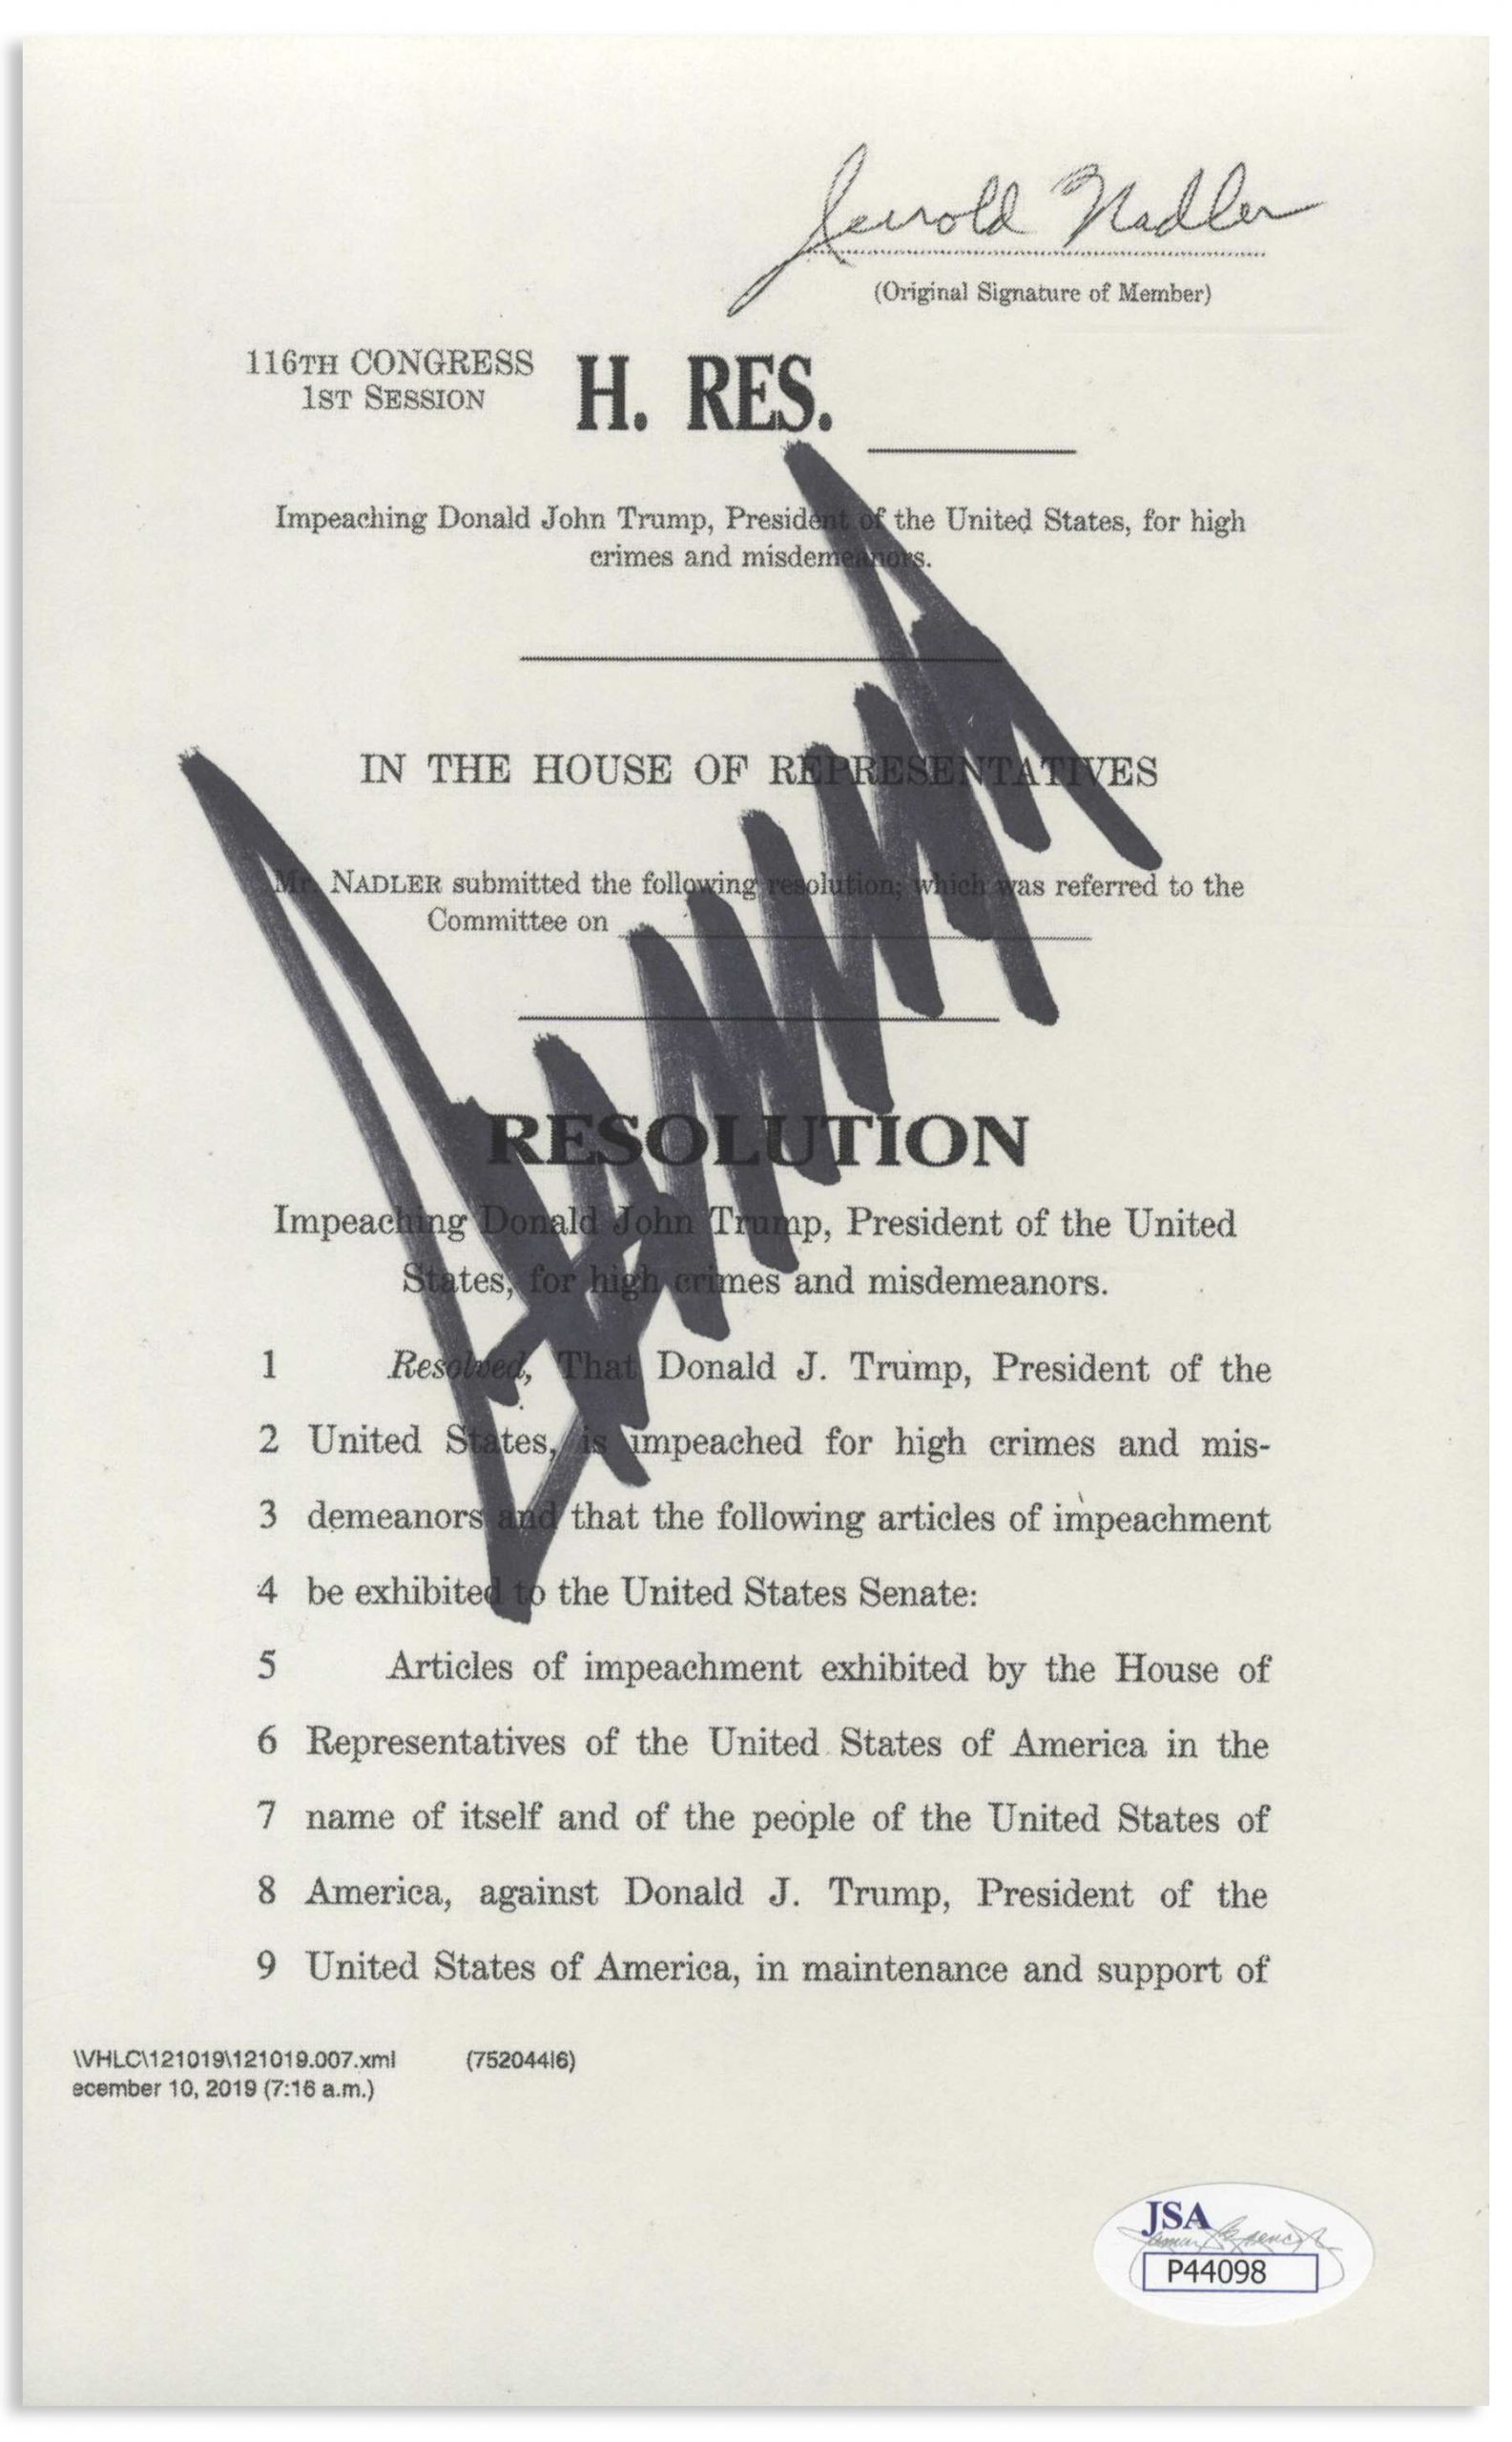 Jerrold Nadler
(Original Signature of Member)
116TH CONGRESS
1ST SESSION
H. RES.
Impeaching Donald John Trump, President of the United States, for high
crimes and misdemeanors.
IN THE HOUSE OF REPRESENTATIVES
Mr. NADLER submitted the following resolution; which was referred to the
Committee on
RESOLUTION
Impeaching Donald John Trump, President of the United
States, for high crimes and misdemeanors.
1 Resolved, That Donald J. Trump, President of the
2 United States, is impeached for high crimes and mis-
3 demeanors and that the following articles of impeachment
4 be exhibited to the United States Senate:
5 Articles of impeachment exhibited by the House of
6 Representatives of the United States of America in the
7 name of itself and of the people of the United States of
8 America, against Donald J. Trump, President of the
9 United States of America, in maintenance and support of
\VHLC\121019\121019.007.xml (752044|6)
ecember 10, 2019 (7:16 a.m.)
JSA
P44098